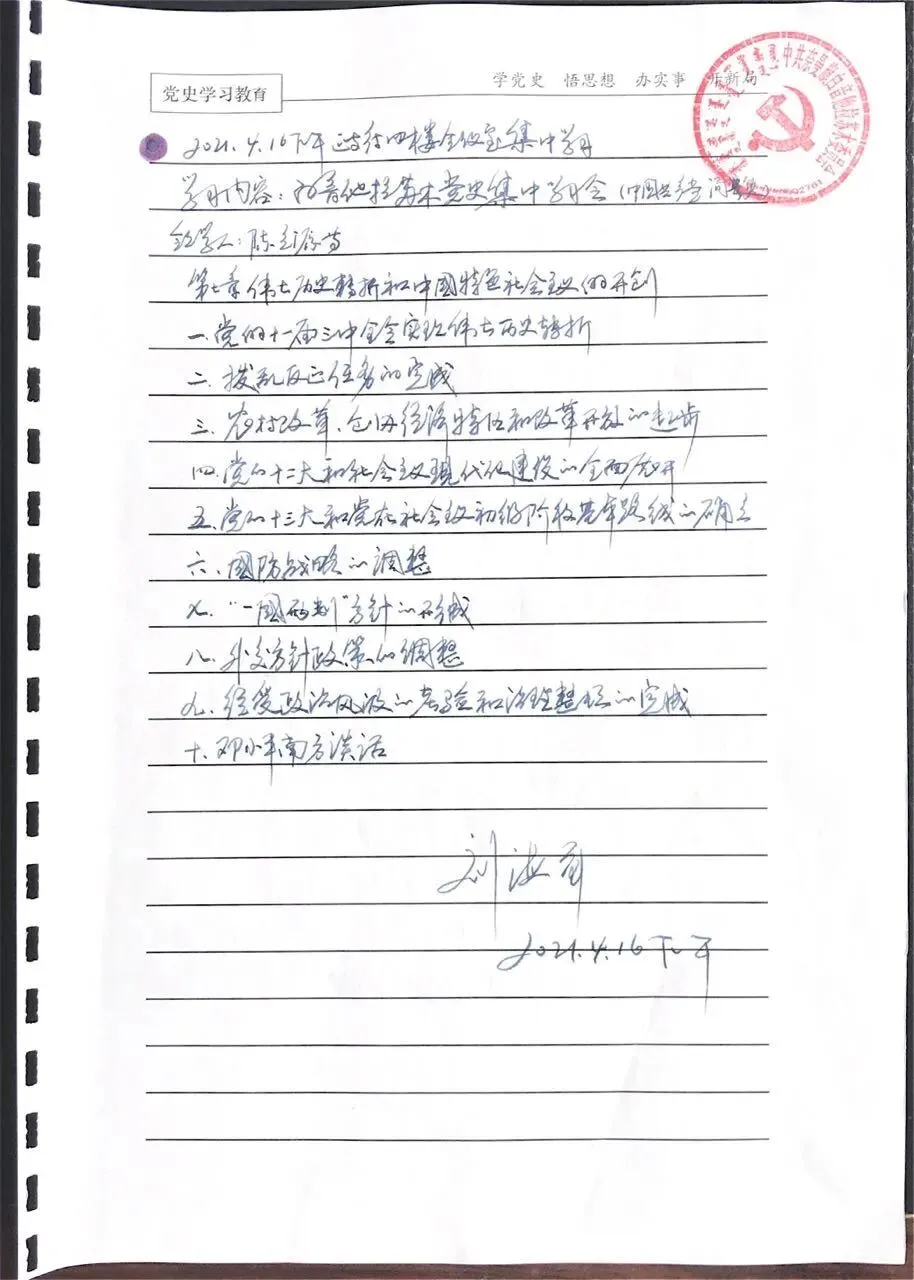 党史学习教育
学党史 悟思想 办实事 开新局
2021.4.16下午 四楼会议室集中学习
学习内容：苏木党史集中学习会（中国共产党简史）
第七章伟大历史转折和中国特色社会主义的开创
一.党的十一届三中全会实现伟大历史转折
二.拨乱反正任务的完成
三.农村改革、创办经济特区和改革开放的起步
四.党的十二大和社会主义现代化建设的全面展开
五.党的十三大和党在社会主义初级阶段基本路线的确立
六.国防战略的调整
七.“一国两制”方针的形成
八.外交方针政策的调整
九.经受政治风波的考验和治理整顿的完成
十.邓小平南方谈话
刘海
2021.4.16下午